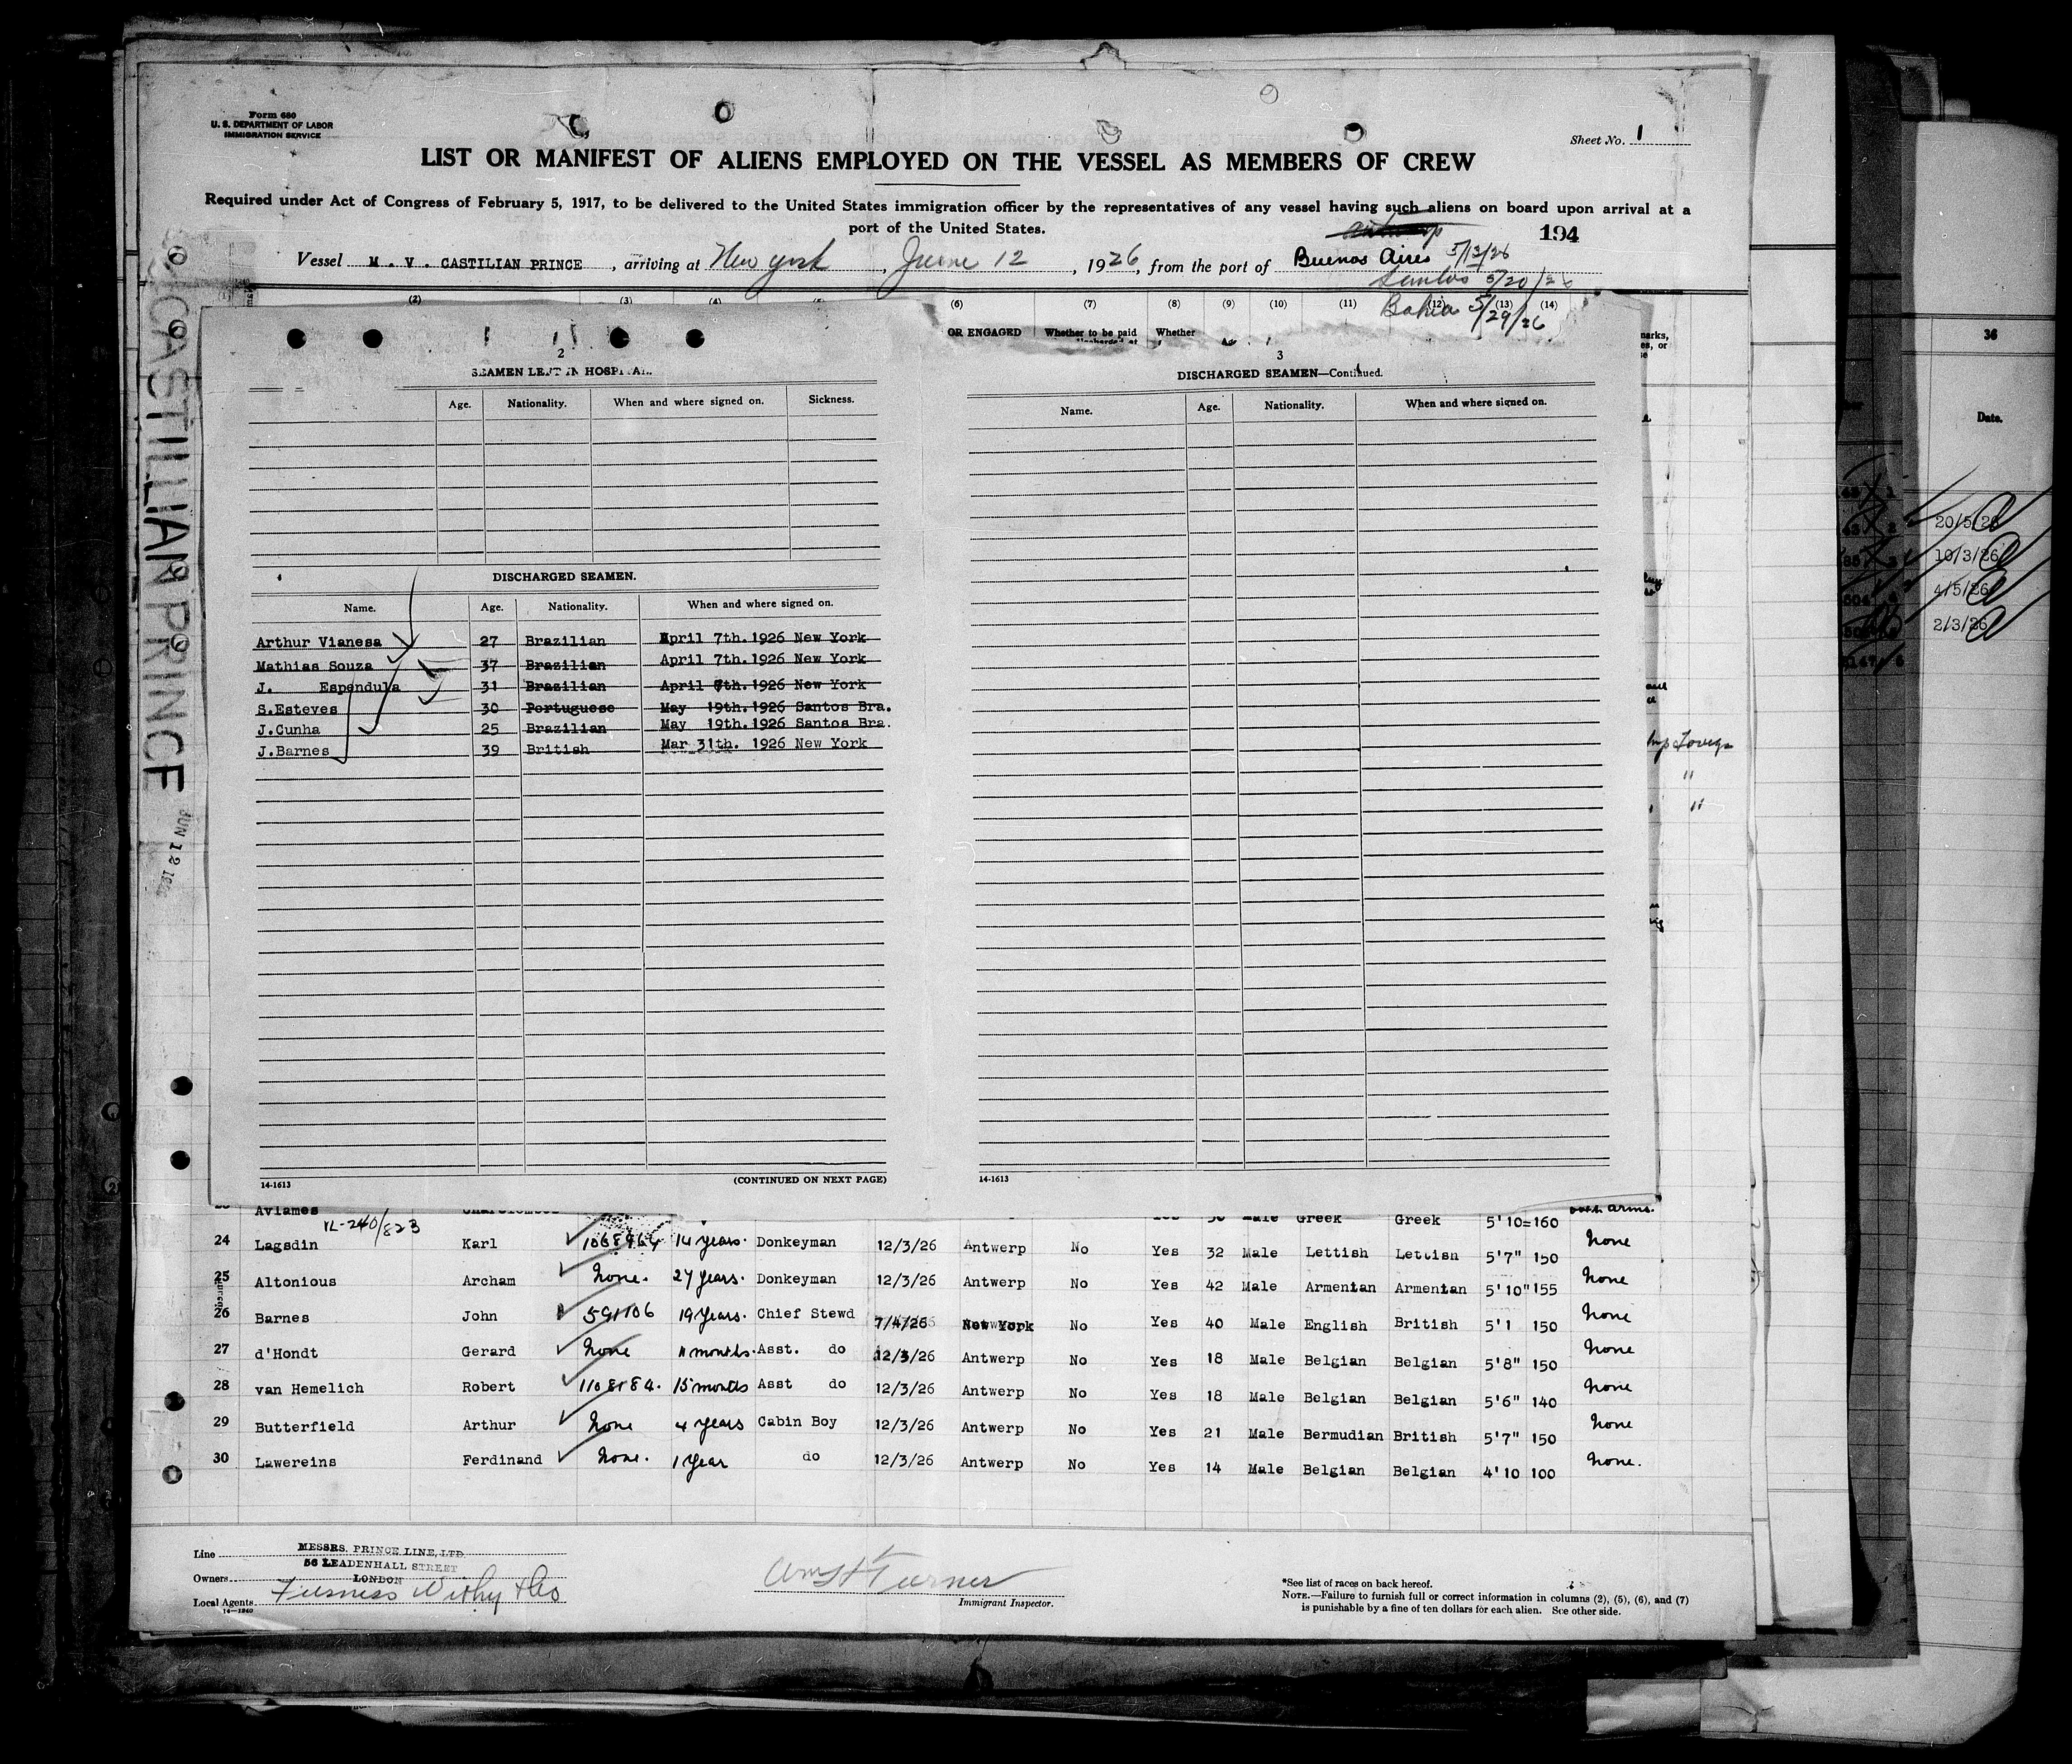 Form 680
U. S. DEPARTMENT OF LABOR
IMMIGRATION SERVICE
Sheet No. 1
LIST OR MANIFEST OF ALIENS EMPLOYED ON THE VESSEL AS MEMBERS OF CREW
Required under Act of Congress of February 5, 1917, to be delivered to the United States immigration officer by the representatives of any vessel having such aliens on board upon arrival at a
port of the United States.
194
Vessel M. V. CASTILIAN PRINCE, arriving at New York, June 12, 1926, from the port of Buenos Aires 5/13/26
Santos 5/20/26
Bahia 5/29/26
(2) (3) (4) (6) (7) (8) (9) (10) (11) (12) (13) (14)
OR ENGAGED Whether to be paid Whether
CASTILLIAN PRINCE
JUN 12
2
SEAMEN LEFT IN HOSPITAL.
Age. Nationality. When and where signed on. Sickness.
DISCHARGED SEAMEN.
Name. Age. Nationality. When and where signed on.
Arthur Vianesa 27 Brazilian April 7th. 1926 New York
Mathias Souza 37 Brazilian April 7th. 1926 New York
J. Espendula 31 Brazilian April 7th. 1926 New York
S.Esteves 30 Portuguese May 19th. 1926 Santos Bra.
J.Cunha 25 Brazilian May 19th. 1926 Santos Bra.
J.Barnes 39 British Mar 31th. 1926 New York
14-1613 (CONTINUED ON NEXT PAGE)
3
DISCHARGED SEAMEN—Continued.
Name. Age. Nationality. When and where signed on.
14-1613
36
Date.
20/5/26
10/3/26
4/5/26
2/3/26
Aviames Yes Male Greek Greek 5'10 160 arms.
24 Lagsdin Karl 1068964 14 years. Donkeyman 12/3/26 Antwerp No Yes 32 Male Lettish Lettish 5'7" 150 None
25 Altonious Archam None. 27 years. Donkeyman 12/3/26 Antwerp No Yes 42 Male Armenian Armenian 5'10" 155 None
26 Barnes John 591106 19 years. Chief Stewd 7/4/26 New York No Yes 40 Male English British 5'1 150 None
27 d'Hondt Gerard None 11 months. Asst. do 12/3/26 Antwerp No Yes 18 Male Belgian Belgian 5'8" 150 None
28 van Hemelich Robert 1108184. 15 months Asst do 12/3/26 Antwerp No Yes 18 Male Belgian Belgian 5'6" 140 None
29 Butterfield Arthur None 4 years Cabin Boy 12/3/26 Antwerp No Yes 21 Male Bermudian British 5'7" 150 None
30 Lawereins Ferdinand None. 1 year do 12/3/26 Antwerp No Yes 14 Male Belgian Belgian 4'10 100 None.
Line MESSRS. PRINCE LINE, LTD
56 LEADENHALL STREET
Owners LONDON
Local Agents Furness Withy & Co
14-1240
Wm H Turner
Immigrant Inspector.
*See list of races on back hereof.
NOTE.—Failure to furnish full or correct information in columns (2), (5), (6), and (7)
is punishable by a fine of ten dollars for each alien. See other side.